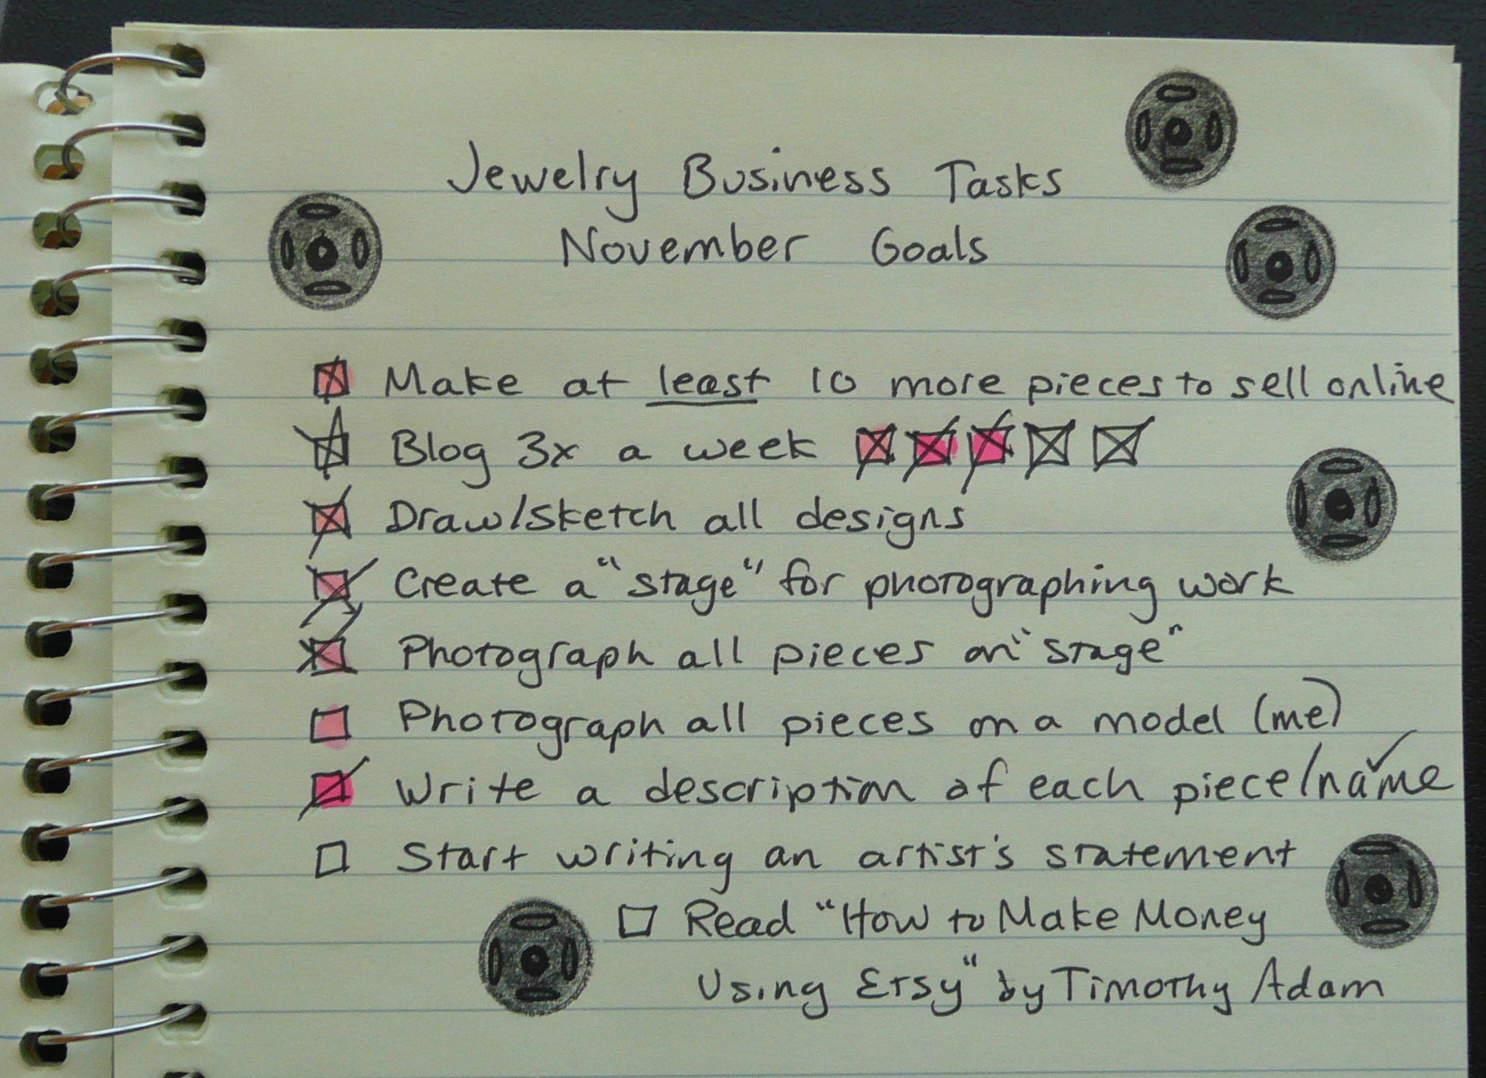 Jewelry Business Tasks
November Goals
Make at least 10 more pieces to sell online
Blog 3x a week
Draw/sketch all designs
Create a "stage" for photographing work
Photograph all pieces on "stage"
Photograph all pieces on a model (me)
Write a description of each piece/name
Start writing an artist's statement
Read "How to Make Money
Using Etsy" by Timothy Adam